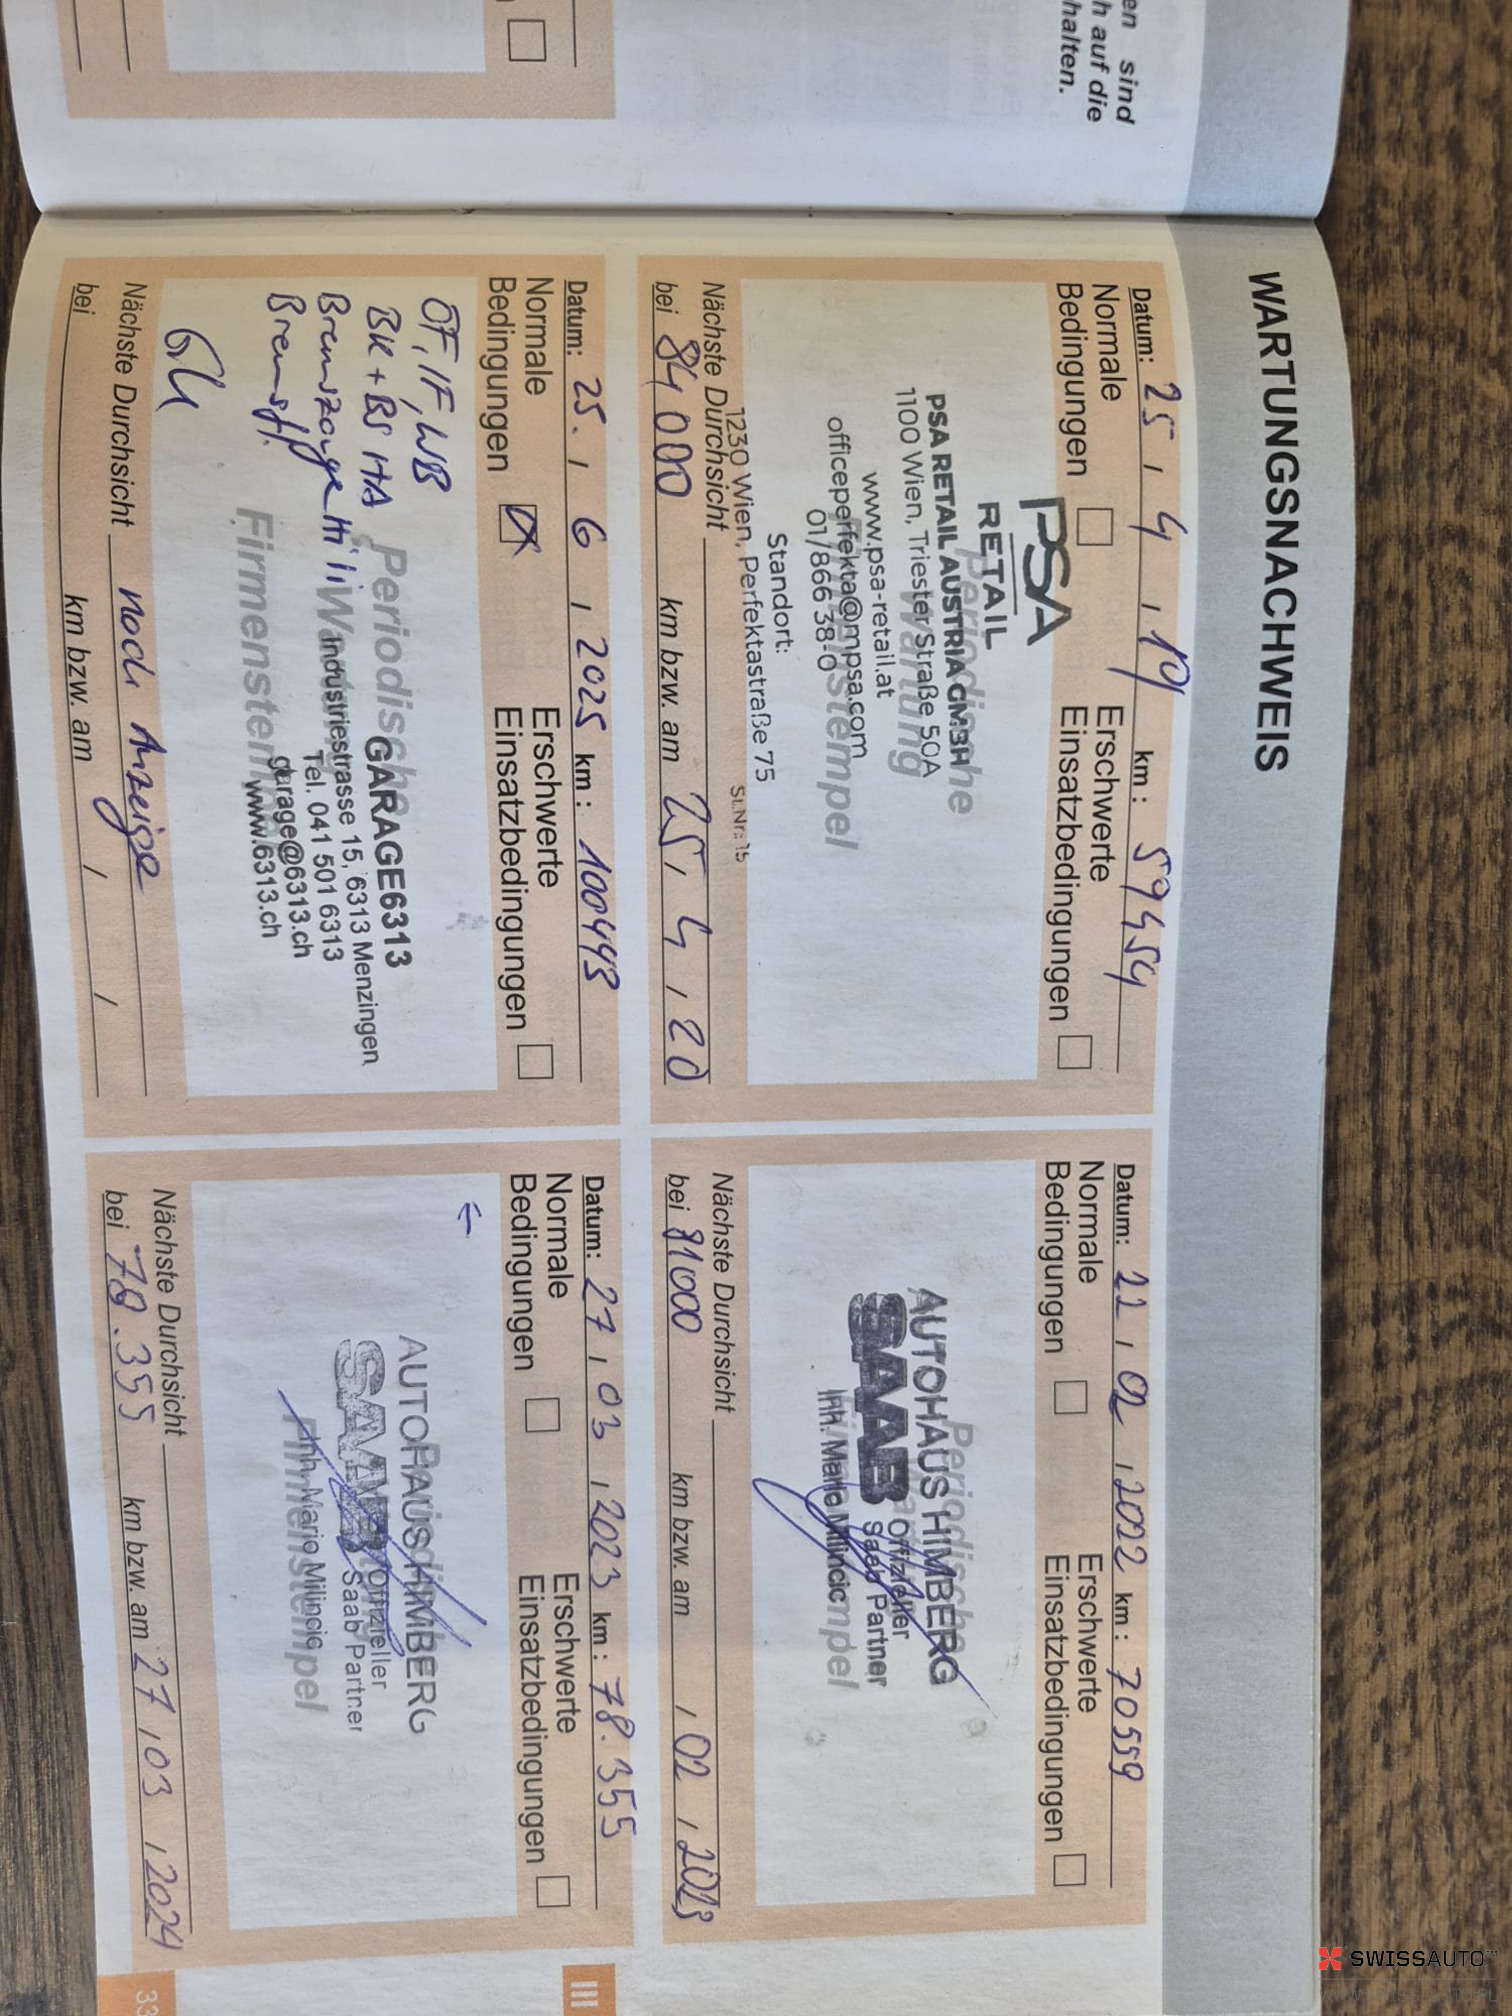 en sind
h auf die
halten.
WARTUNGSNACHWEIS
Datum: 25 / 4 / 19 km : 59454
Normale Bedingungen
Erschwerte Einsatzbedingungen
Periodische
Wartung
Firmenstempel
PSA
RETAIL
PSA RETAIL AUSTRIA GMBH
1100 Wien, Triester Straße 50A
www.psa-retail.at
officeperfekta@mpsa.com
01/866 38-0
Standort:
1230 Wien, Perfektastraße 75
St.Nr.: 15
Nächste Durchsicht
bei 84000 km bzw. am 25 / 4 / 20
Datum: 22 / 02 / 2022 km : 70559
Normale Bedingungen
Erschwerte Einsatzbedingungen
Periodische
AUTOHAUS HIMBERG
SAAB Offizieller
Saab Partner
Inh. Mario Milincic
Nächste Durchsicht
bei 81000 km bzw. am / 02 / 2023
Datum: 25. / 6 / 2025 km : 100443
Normale Bedingungen
Erschwerte Einsatzbedingungen
ÖF, IF, WB
BK + BS HA
Bremszange Hi li
Bremsfl.
Periodische
Wartung
Firmenstempel
GARAGE6313
Industriestrasse 15, 6313 Menzingen
Tel. 041 501 6313
garage@6313.ch
www.6313.ch
Nächste Durchsicht nach Anzeige
bei km bzw. am / /
Datum: 27 / 03 / 2023 km : 78.355
Normale Bedingungen
Erschwerte Einsatzbedingungen
←
AUTOHAUS HIMBERG
SAAB Offizieller
Saab Partner
Inh. Mario Milincic
Firmenstempel
Nächste Durchsicht
bei 78.355 km bzw. am 27 / 03 / 2024
III
33
SWISSAUTO